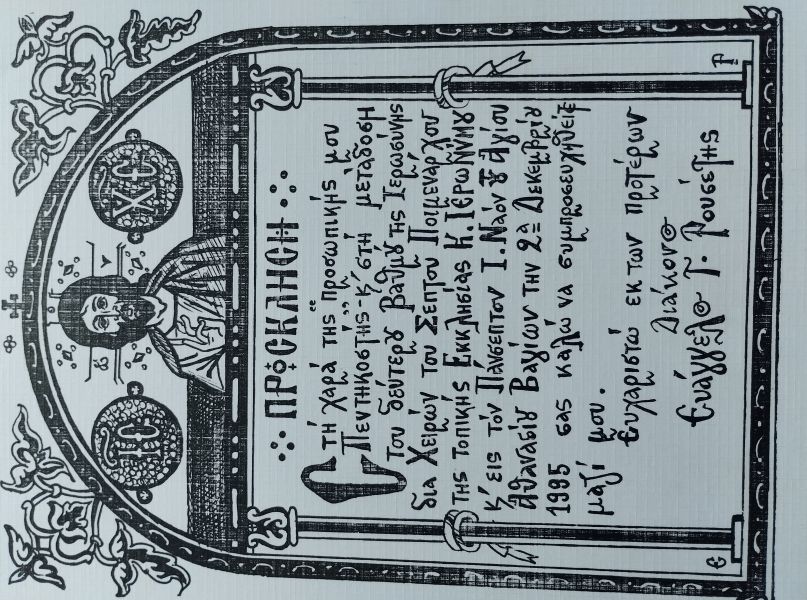 ΙC
ΧC
Ο Ω Ν
ΠΡΟΣΚΛΗΣΗ
Στή χαρά τῆς Προσωπικῆς μου
"Πεντηκοστῆς" κ' στή μετάδοση
Του δεύτερȣ Βαθμȣ της Ιερωσύνης
δια Χειρών του Σεπτου Ποιμενάρχου
της τοπικής Εκκλησίας Κ. Ιερωνύμȣ
κ' εις τόν Πάνσεπτον Ι. Ναόν τȣ Αγίου
Αθανασίȣ Βαγίων την 2α Δεκεμβρίȣ
1995 σας καλώ να συμπροσευχηθείτε
μαζί μου.
Ευχαριστώ εκ των προτέρων
Διάκονος
Ευάγγελος Γ. Ρουσέτης
Ε Γ